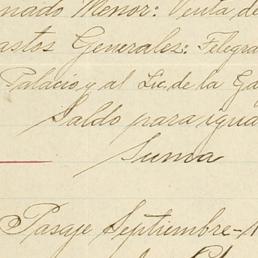 nado Menor: Venta de
astos Generales: Telegra
Palacio y al Lic. de la Ga
Saldo para igua
Suma
Pasaje Septiembre-